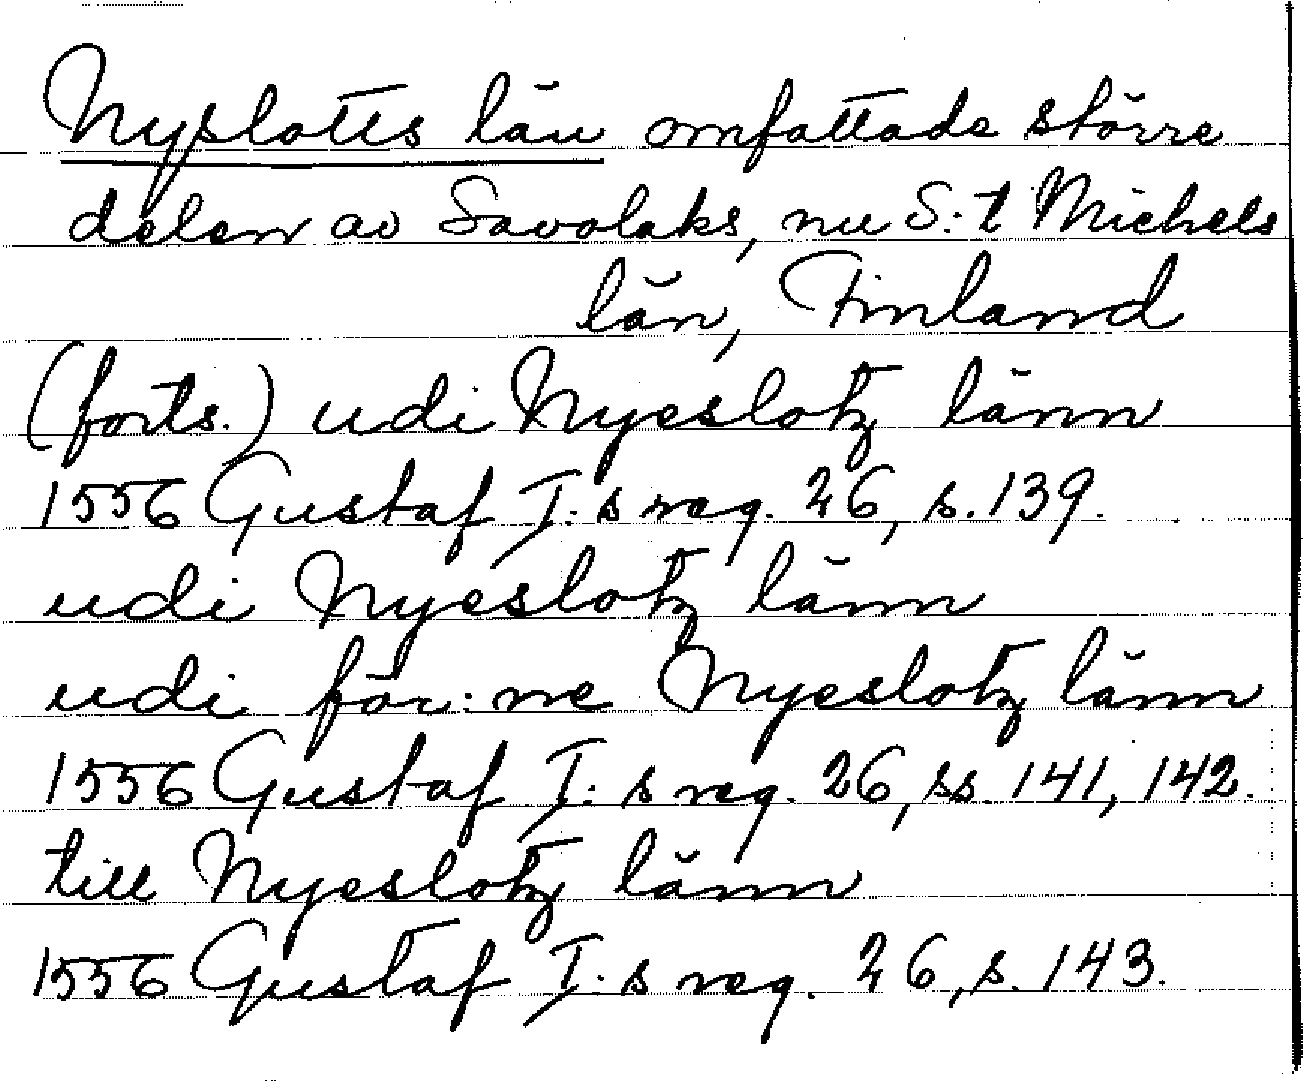 Nyslotts län omfattade större
delen av Savolaks, nu S:t Michels
län, Finland
(forts.) udi Nyeslotz länn
1556 Gustaf I:s reg. 26, s. 139.
udi Nyeslotz länn
udi för:ne Nyeslotz länn
1556 Gustaf I:s reg. 26, ss. 141, 142.
till Nyeslotz länn
1556 Gustaf I:s reg. 26, s. 143.